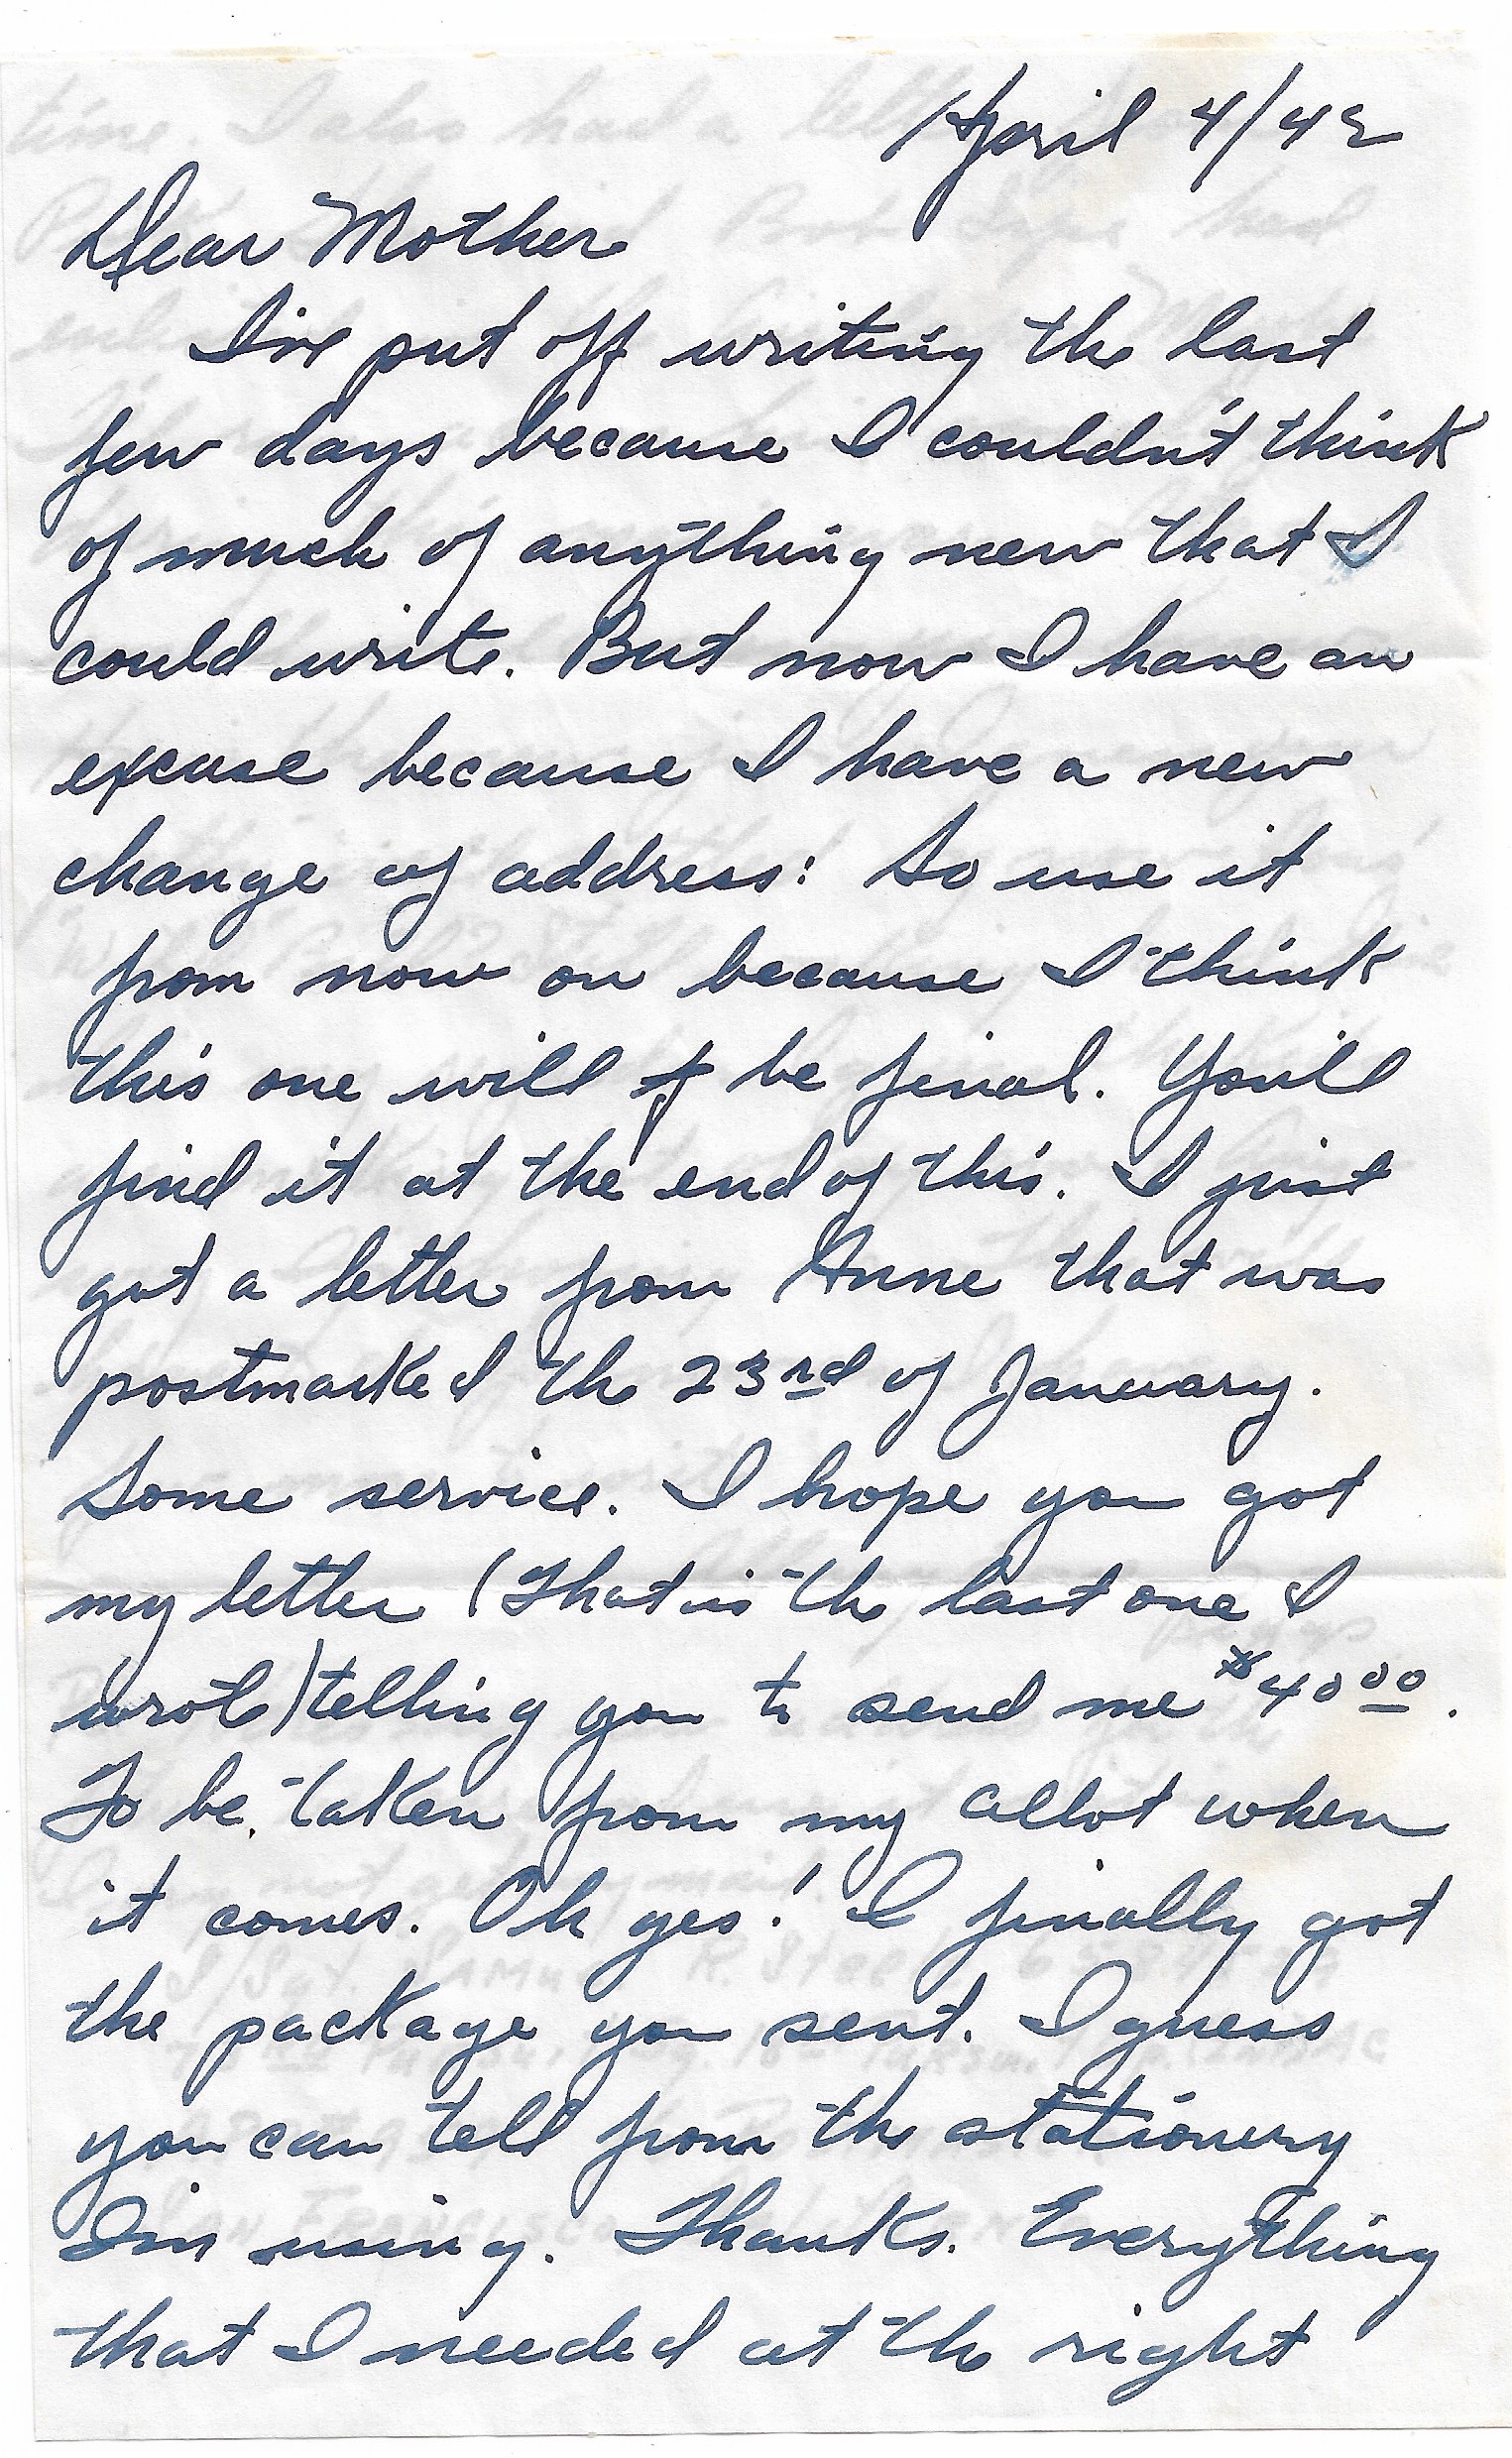 April 4/42
Dear Mother
I've put off writing the last
few days because I couldn't think
of much of anything new that I
could write. But now I have an
excuse because I have a new
change of address: So use it
from now on because I think
this one will f be final. You'll
find it at the end of this. I just
got a letter from Anne that was
postmarked the 23rd of January.
Some service. I hope you got
my letter (That is the last one I
wrote) telling you to send me $40 00.
To be taken from my allot when
it comes. Oh yes! I finally got
the package you sent. I guess
you can tell from the stationery
I'm using. Thanks. Everything
that I needed at the right